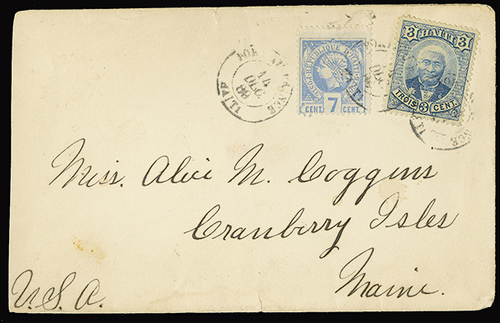 PORT AU PRINCE
14
DEC
HAITI
REPUBLIQUE D'HAITI
CENT. 7 CENT.
3 HAITI 3
TROIS 3 CENT.
DEC
Miss. Alice M. Coggins
Cranberry Isles
Maine.
U.S.A.